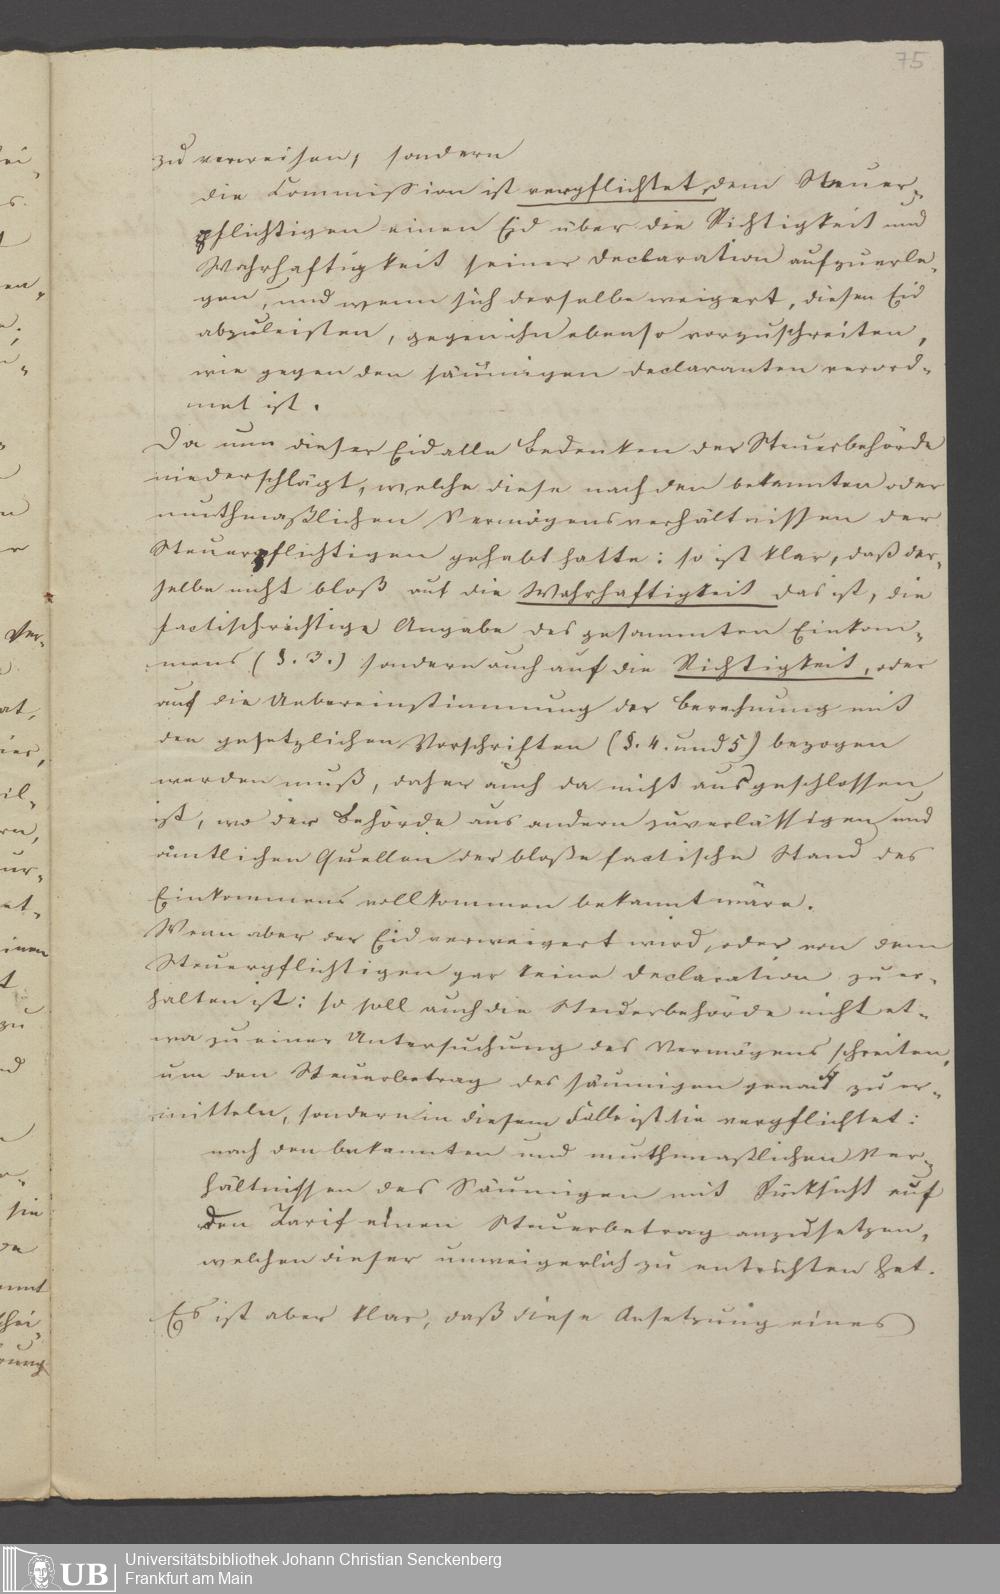 75
zu verweisen, sondern
die Commission ist verpflichtet, dem Steuer-
pflichtigen einen Eid über die Richtigkeit und
Wahrhaftigkeit seiner Declaration aufzuerle-
gen, und wenn sich derselbe weigert, diesen Eid
abzuleisten, gegen ihn ebenso vorzuschreiten,
wie gegen den säumigen Declaranten verord-
net ist.
Da nun dieser Eid alle Bedenken der Steuerbehörde
niederschlägt, welche diese nach den bekannten oder
muthmaßlichen Vermögensverhältnissen der
Steuerpflichtigen gehabt hatte: so ist klar, daß der-
selbe nicht bloß auf die Wahrhaftigkeit das ist, die
factischrichtige Angabe des gesammten Einkom-
mens (§. 3.) sondern auch auf die Richtigkeit, oder
auf die Uebereinstimmung der Berechnung mit
den gesetzlichen Vorschriften (§. 4. und 5) bezogen
werden muß, daher auch da nicht ausgeschlossen
ist, wo der Behörde aus andern zuverlässigen und
amtlichen Quellen der bloße factische Stand des
Einkommens vollkommen bekannt wäre.
Wenn aber der Eid verweigert wird, oder von dem
Steuerpflichtigen gar keine Declaration zu er-
halten ist: so soll auch die Steuerbehörde nicht et-
wa zu einer Untersuchung des Vermögens schreiten,
um den Steuerbetrag des säumigen genau zu er-
mitteln, sondern in diesem Falle ist sie verpflichtet:
nach den bekannten und muthmaßlichen Ver-
hältnissen des Säumigen mit Rücksicht auf
den Tarif einen Steuerbetrag anzusetzen,
welchen dieser unweigerlich zu entrichten hat.
Es ist aber klar, daß diese Ansetzung eines
UB
Universitätsbibliothek Johann Christian Senckenberg
Frankfurt am Main